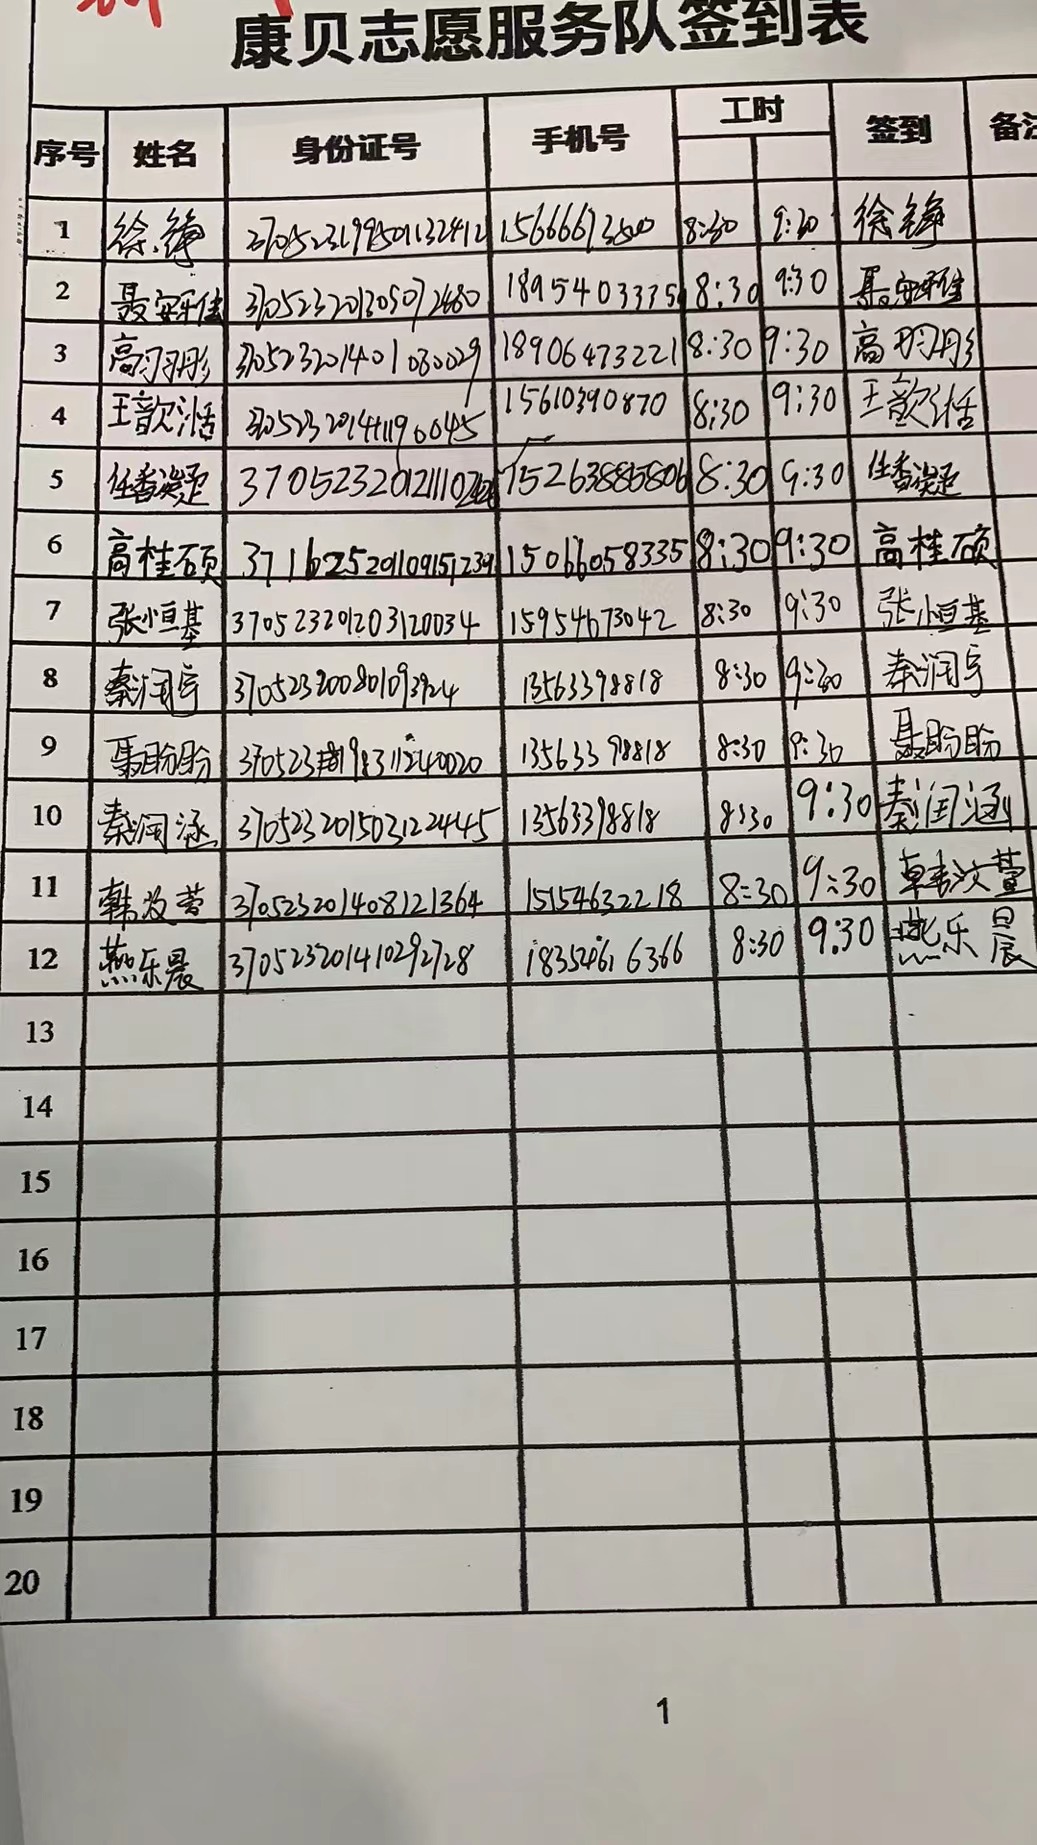 康贝志愿服务队签到表
序号 姓名 身份证号 手机号 工时 签到 备注
1 徐铮 370523199501132412 15666673500 8:30 9:30 徐铮
2 聂安佳 370523201305072680 18954033356 8:30 9:30 聂安佳
3 高羽彤 370523201401080029 18906473221 8:30 9:30 高羽彤
4 王歆湉 15610390870 8:30 9:30 王歆湉
5 任香凝 15263885806 8:30 9:30 任香凝
6 高桂硕 371625201109151239 15066058335 8:30 9:30 高桂硕
7 张恒基 370523201203120034 15954673042 8:30 9:30 张恒基
8 秦润宇 370523200801093924 13563398818 8:30 9:30 秦润宇
9 聂盼盼 13563398818 8:30 9:30 聂盼盼
10 秦润涵 370523201503122445 13563398818 8:30 9:30 秦润涵
11 韩汶萱 370523201408121364 15154632218 8:30 9:30 韩汶萱
12 燕乐晨 370523201410292728 18354616366 8:30 9:30 燕乐晨
13
14
15
16
17
18
19
20
1